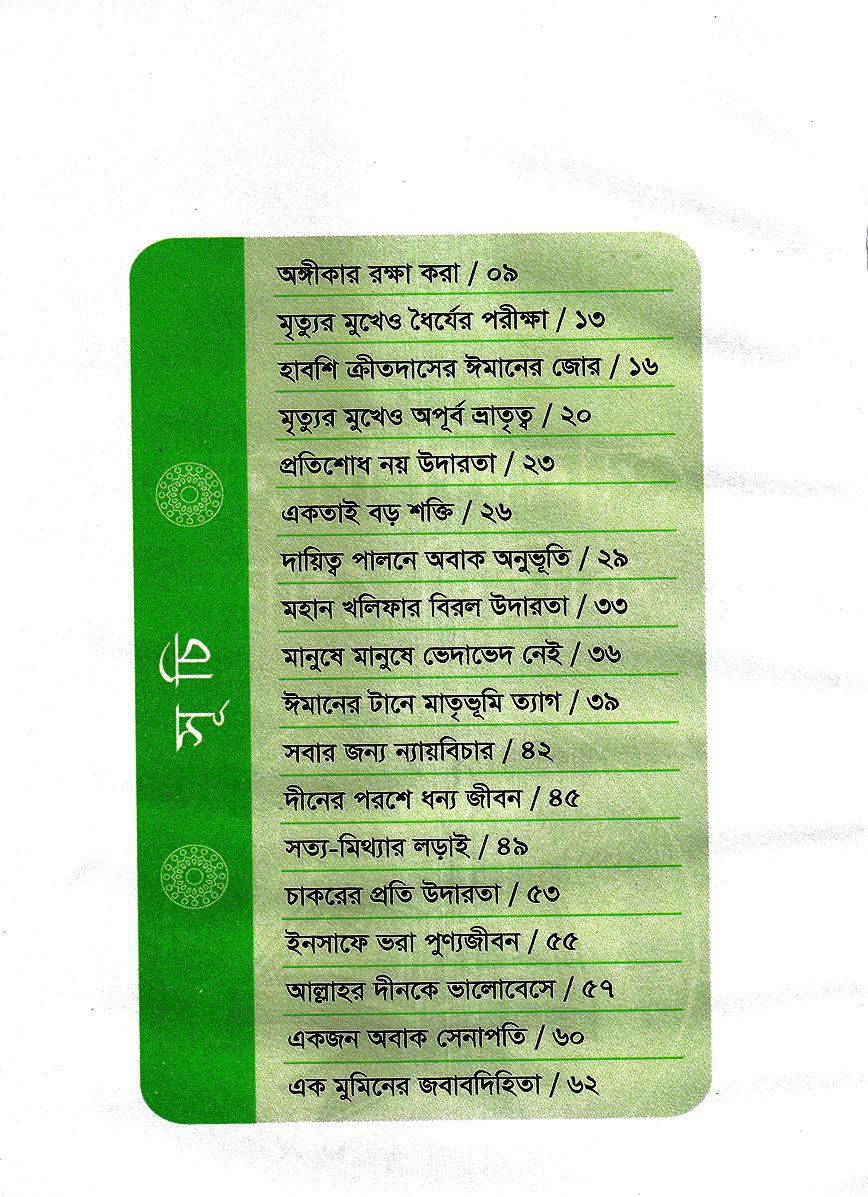 সূচি
অঙ্গীকার রক্ষা করা / ০৯
মৃত্যুর মুখেও ধৈর্যের পরীক্ষা / ১৩
হাবশি ক্রীতদাসের ঈমানের জোর / ১৬
মৃত্যুর মুখেও অপূর্ব ভ্রাতৃত্ব / ২০
প্রতিশোধ নয় উদারতা / ২৩
একতাই বড় শক্তি / ২৬
দায়িত্ব পালনে অবাক অনুভূতি / ২৯
মহান খলিফার বিরল উদারতা / ৩৩
মানুষে মানুষে ভেদাভেদ নেই / ৩৬
ঈমানের টানে মাতৃভূমি ত্যাগ / ৩৯
সবার জন্য ন্যায়বিচার / ৪২
দীনের পরশে ধন্য জীবন / ৪৫
সত্য-মিথ্যার লড়াই / ৪৯
চাকরের প্রতি উদারতা / ৫৩
ইনসাফে ভরা পুণ্যজীবন / ৫৫
আল্লাহর দীনকে ভালোবেসে / ৫৭
একজন অবাক সেনাপতি / ৬০
এক মুমিনের জবাবদিহিতা / ৬২